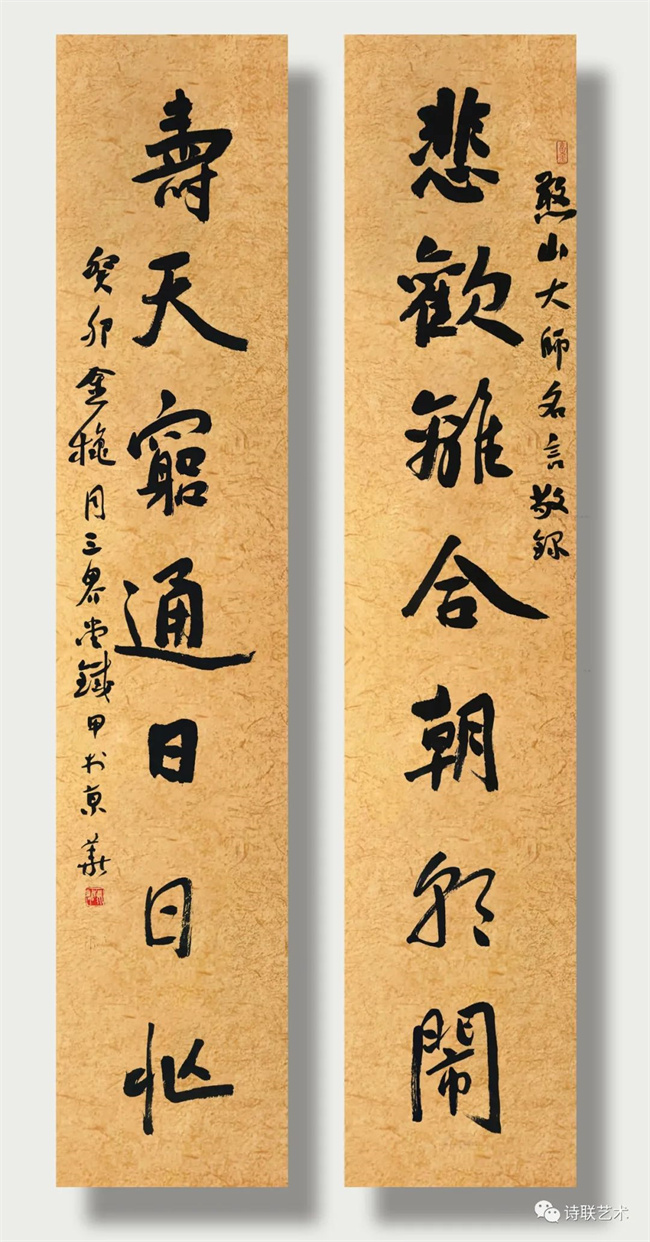 憨山大師名言敬錄
悲歡離合朝朝鬧
壽天窮通日日忙
癸卯金秋月三堂鐵甲於京華
诗联艺术